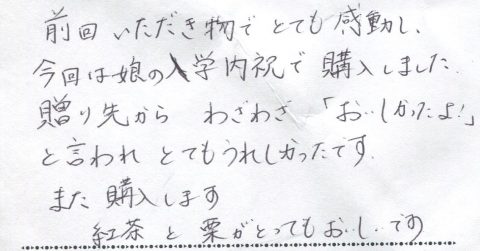 前回 いただき物で とても 感動し、
今回は娘の入学内祝で 購入しました.
贈り先から わざわざ 「おいしかったよ!」
と言われ とてもうれしかったです.
また 購入します
紅茶 と 栗がとってもおいしいです